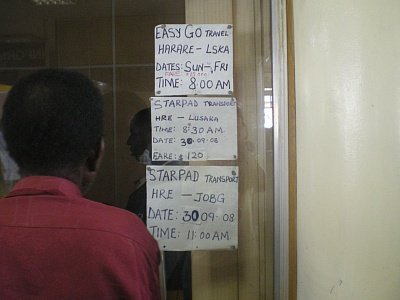 EASY GO TRAVEL
HARARE - LSKA
DATES: SUN - FRI
TIME: 8:00 AM
STARPAD TRANSPORT
HRE - LUSAKA
TIME: 8:30 AM
DATE: 30-09-08
FARE: $ 120
STARPAD TRANSPORT
HRE - JOBG
DATE: 30 09-08
TIME: 11:00 AM